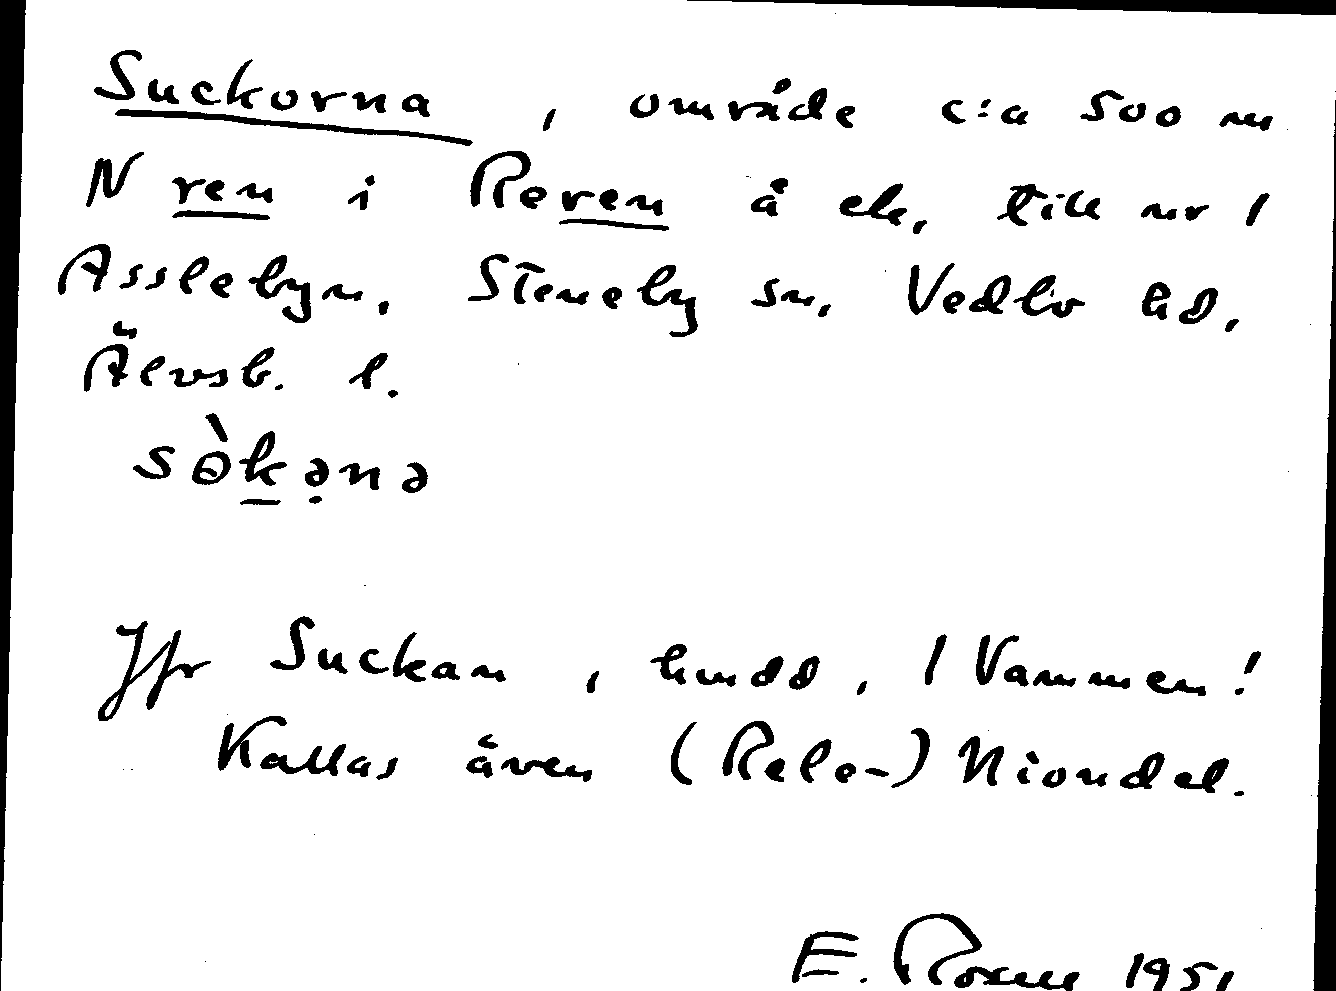 Suckorna, område c:a 500 m
N ren i Reren å ek. till nr 1
Asslebyn, Steneby sn, Vedbo hd,
Älvsb. l.
sɵ̀k̲ə̣nə
Jfr Suckan, hmdd, 1 Vammen!
Kallas även (Rele-) Niondel.
E. Rosell 1951